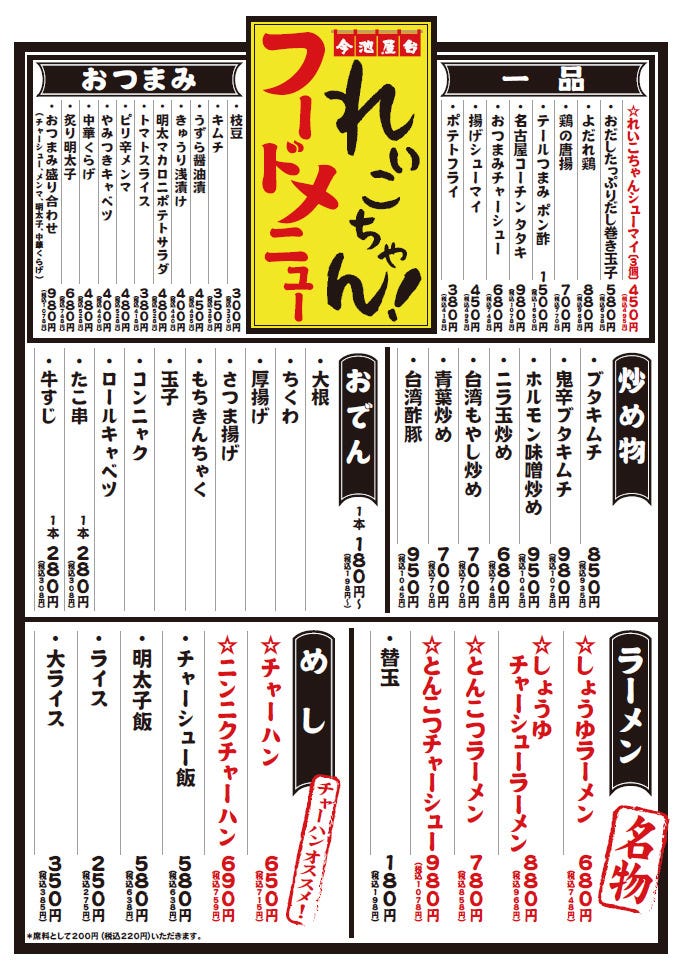 今池屋台
れいこちゃん!
フードメニュー
一品
☆れいこちゃんシューマイ(3個) 450円 (税込495円)
・おだしたっぷりだし巻き玉子 580円 (税込638円)
・よだれ鶏 880円 (税込968円)
・鶏の唐揚 700円 (税込770円)
・テールつまみ ポン酢
・名古屋コーチン タタキ 980円 (税込1078円)
・おつまみチャーシュー 680円 (税込748円)
・揚げシューマイ
・ポテトフライ 380円 (税込418円)
おつまみ
・枝豆 300円 (税込330円)
・キムチ
・うずら醤油漬 450円 (税込495円)
・きゅうり浅漬け 400円 (税込440円)
・明太マカロニポテトサラダ 480円 (税込528円)
・トマトスライス 380円 (税込418円)
・ピリ辛メンマ
・やみつきキャベツ 400円 (税込440円)
・中華くらげ 480円 (税込528円)
・炙り明太子 680円 (税込748円)
・おつまみ盛り合わせ 980円 (税込1078円)
(チャーシュー、メンマ、明太子、中華くらげ)
炒め物
・ブタキムチ 850円 (税込935円)
・鬼辛ブタキムチ 980円 (税込1078円)
・ホルモン味噌炒め 950円 (税込1045円)
・ニラ玉炒め 680円 (税込748円)
・台湾もやし炒め 700円 (税込770円)
・青葉炒め 700円 (税込770円)
・台湾酢豚 950円 (税込1045円)
おでん
1本 180円〜 (税込198円〜)
・大根
・ちくわ
・厚揚げ
・さつま揚げ
・もちきんちゃく
・玉子
・コンニャク
・ロールキャベツ
・たこ串 1本 280円 (税込308円)
・牛すじ 1本 280円 (税込308円)
ラーメン
名物
☆しょうゆラーメン 680円 (税込748円)
☆しょうゆ
チャーシューラーメン 880円 (税込968円)
☆とんこつラーメン 780円 (税込858円)
☆とんこつチャーシュー 980円 (税込1078円)
・替玉 180円 (税込198円)
めし
チャーハンオススメ!
☆チャーハン 650円 (税込715円)
☆ニンニクチャーハン 690円 (税込759円)
・チャーシュー飯 580円 (税込638円)
・明太子飯 580円 (税込638円)
・ライス 250円 (税込275円)
・大ライス 350円 (税込385円)
*席料として200円(税込220円)いただきます。